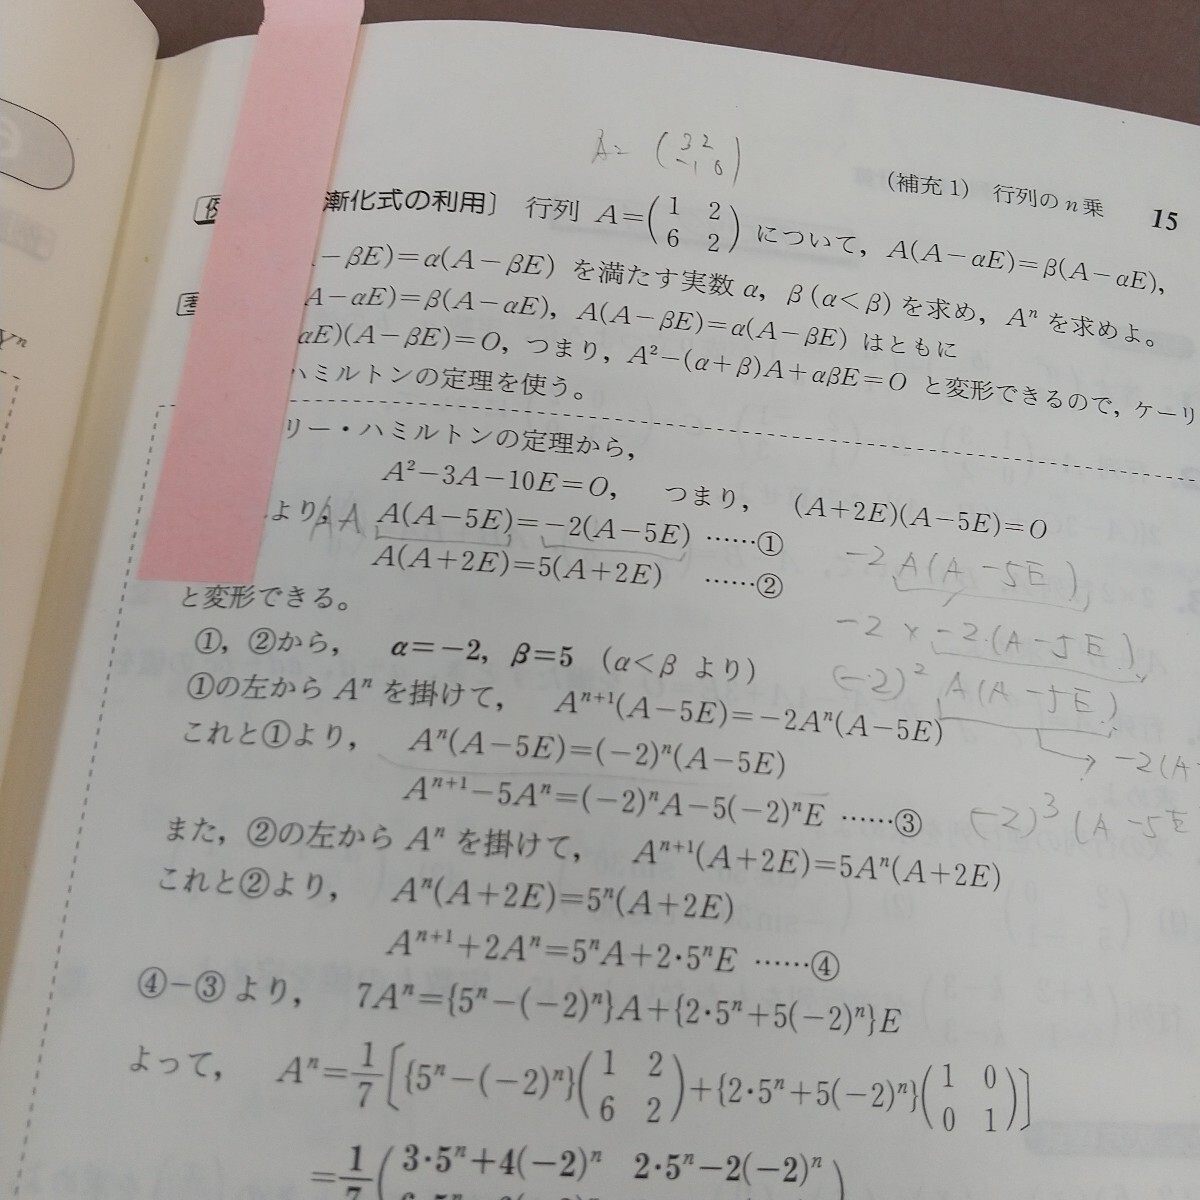 A= (3 2 -1 0)
(補充1) 行列のn乗 15
漸化式の利用〕 行列 A=(1 2 6 2) について，A(A−αE)=β(A−αE),
−βE)=α(A−βE) を満たす実数α，β(α<β)を求め，Aⁿを求めよ。
A−αE)=β(A−αE), A(A−βE)=α(A−βE) はともに
αE)(A−βE)=O, つまり，A²−(α+β)A+αβE=O と変形できるので，ケーリ
ハミルトンの定理を使う。
リー・ハミルトンの定理から，
A²−3A−10E=O, つまり， (A+2E)(A−5E)=O
より， A(A−5E)=−2(A−5E) ……①
A(A+2E)=5(A+2E) ……②
−2 A(A−5E)
と変形できる。
−2 × −2·(A−5E)
①，②から， α=−2, β=5 (α<β より)
(−2)² A(A−5E)
①の左から Aⁿ を掛けて， Aⁿ⁺¹(A−5E)=−2Aⁿ(A−5E)
→ −2(A
これと①より， Aⁿ(A−5E)=(−2)ⁿ(A−5E)
Aⁿ⁺¹−5Aⁿ=(−2)ⁿA−5(−2)ⁿE ……③
(−2)³ (A−5E
また，②の左から Aⁿ を掛けて， Aⁿ⁺¹(A+2E)=5Aⁿ(A+2E)
これと②より， Aⁿ(A+2E)=5ⁿ(A+2E)
Aⁿ⁺¹+2Aⁿ=5ⁿA+2·5ⁿE ……④
④−③より， 7Aⁿ={5ⁿ−(−2)ⁿ}A+{2·5ⁿ+5(−2)ⁿ}E
よって， Aⁿ=1/7[{5ⁿ−(−2)ⁿ}(1 2 6 2)+{2·5ⁿ+5(−2)ⁿ}(1 0 0 1)]
=1/7(3·5ⁿ+4(−2)ⁿ 2·5ⁿ−2(−2)ⁿ